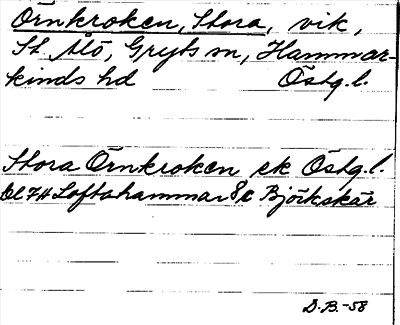 Örnkroken, Stora, vik,
St. Ålö, Gryts sn, Hammar-
kinds hd Östg.l.
Stora Örnkroken ek Östg.l.
bl 7H Loftahammar 8c Björkskär
D.B.-58